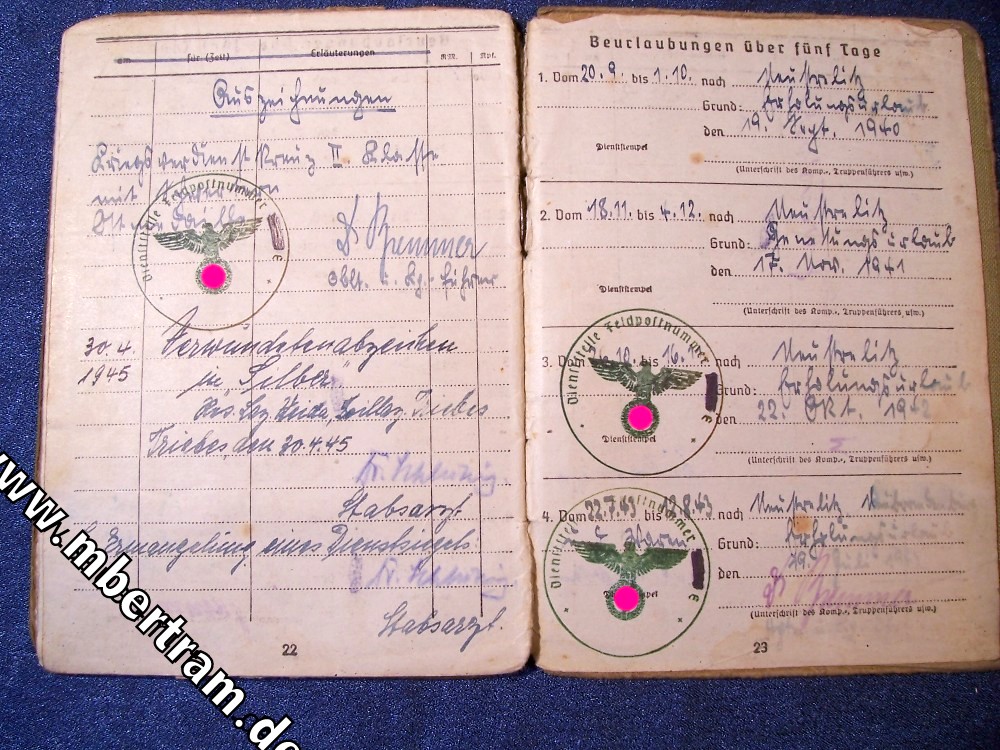 für (Zeit) Erläuterungen RM. Rpf.
Auszeichnungen
Kriegsverdienstkreuz II. Klasse
mit
Dienststelle Feldpostnummer
Oblt. u. Kp.-Führer
30.4. Verwundetenabzeichen
1945 in „Silber“
Triebes
Triebes, den 30.4.45
Stabsarzt
Ermangelung eines Dienstsiegels
Stabsarzt.
22
Beurlaubungen über fünf Tage
1. Vom 20.9. bis 1.10. nach Neustrelitz
Grund: Erholungsurlaub
den 19. Sept. 1940
Dienststempel
(Unterschrift des Komp.-, Truppenführers usw.)
2. Vom 18.11. bis 4.12. nach Neustrelitz
Grund: Genesungsurlaub
den 17. Nov. 1941
Dienststempel
(Unterschrift des Komp.-, Truppenführers usw.)
Dienststelle Feldpostnummer
3. Vom bis nach Neustrelitz
Grund: Erholungsurlaub
den 22. Okt.
Dienststempel
(Unterschrift des Komp.-, Truppenführers usw.)
4. Vom 22.7.43 bis 12.8.43 nach Neustrelitz
Grund: Erholungsurlaub
den
(Unterschrift des Komp.-, Truppenführers usw.)
23
www.mbertram.de